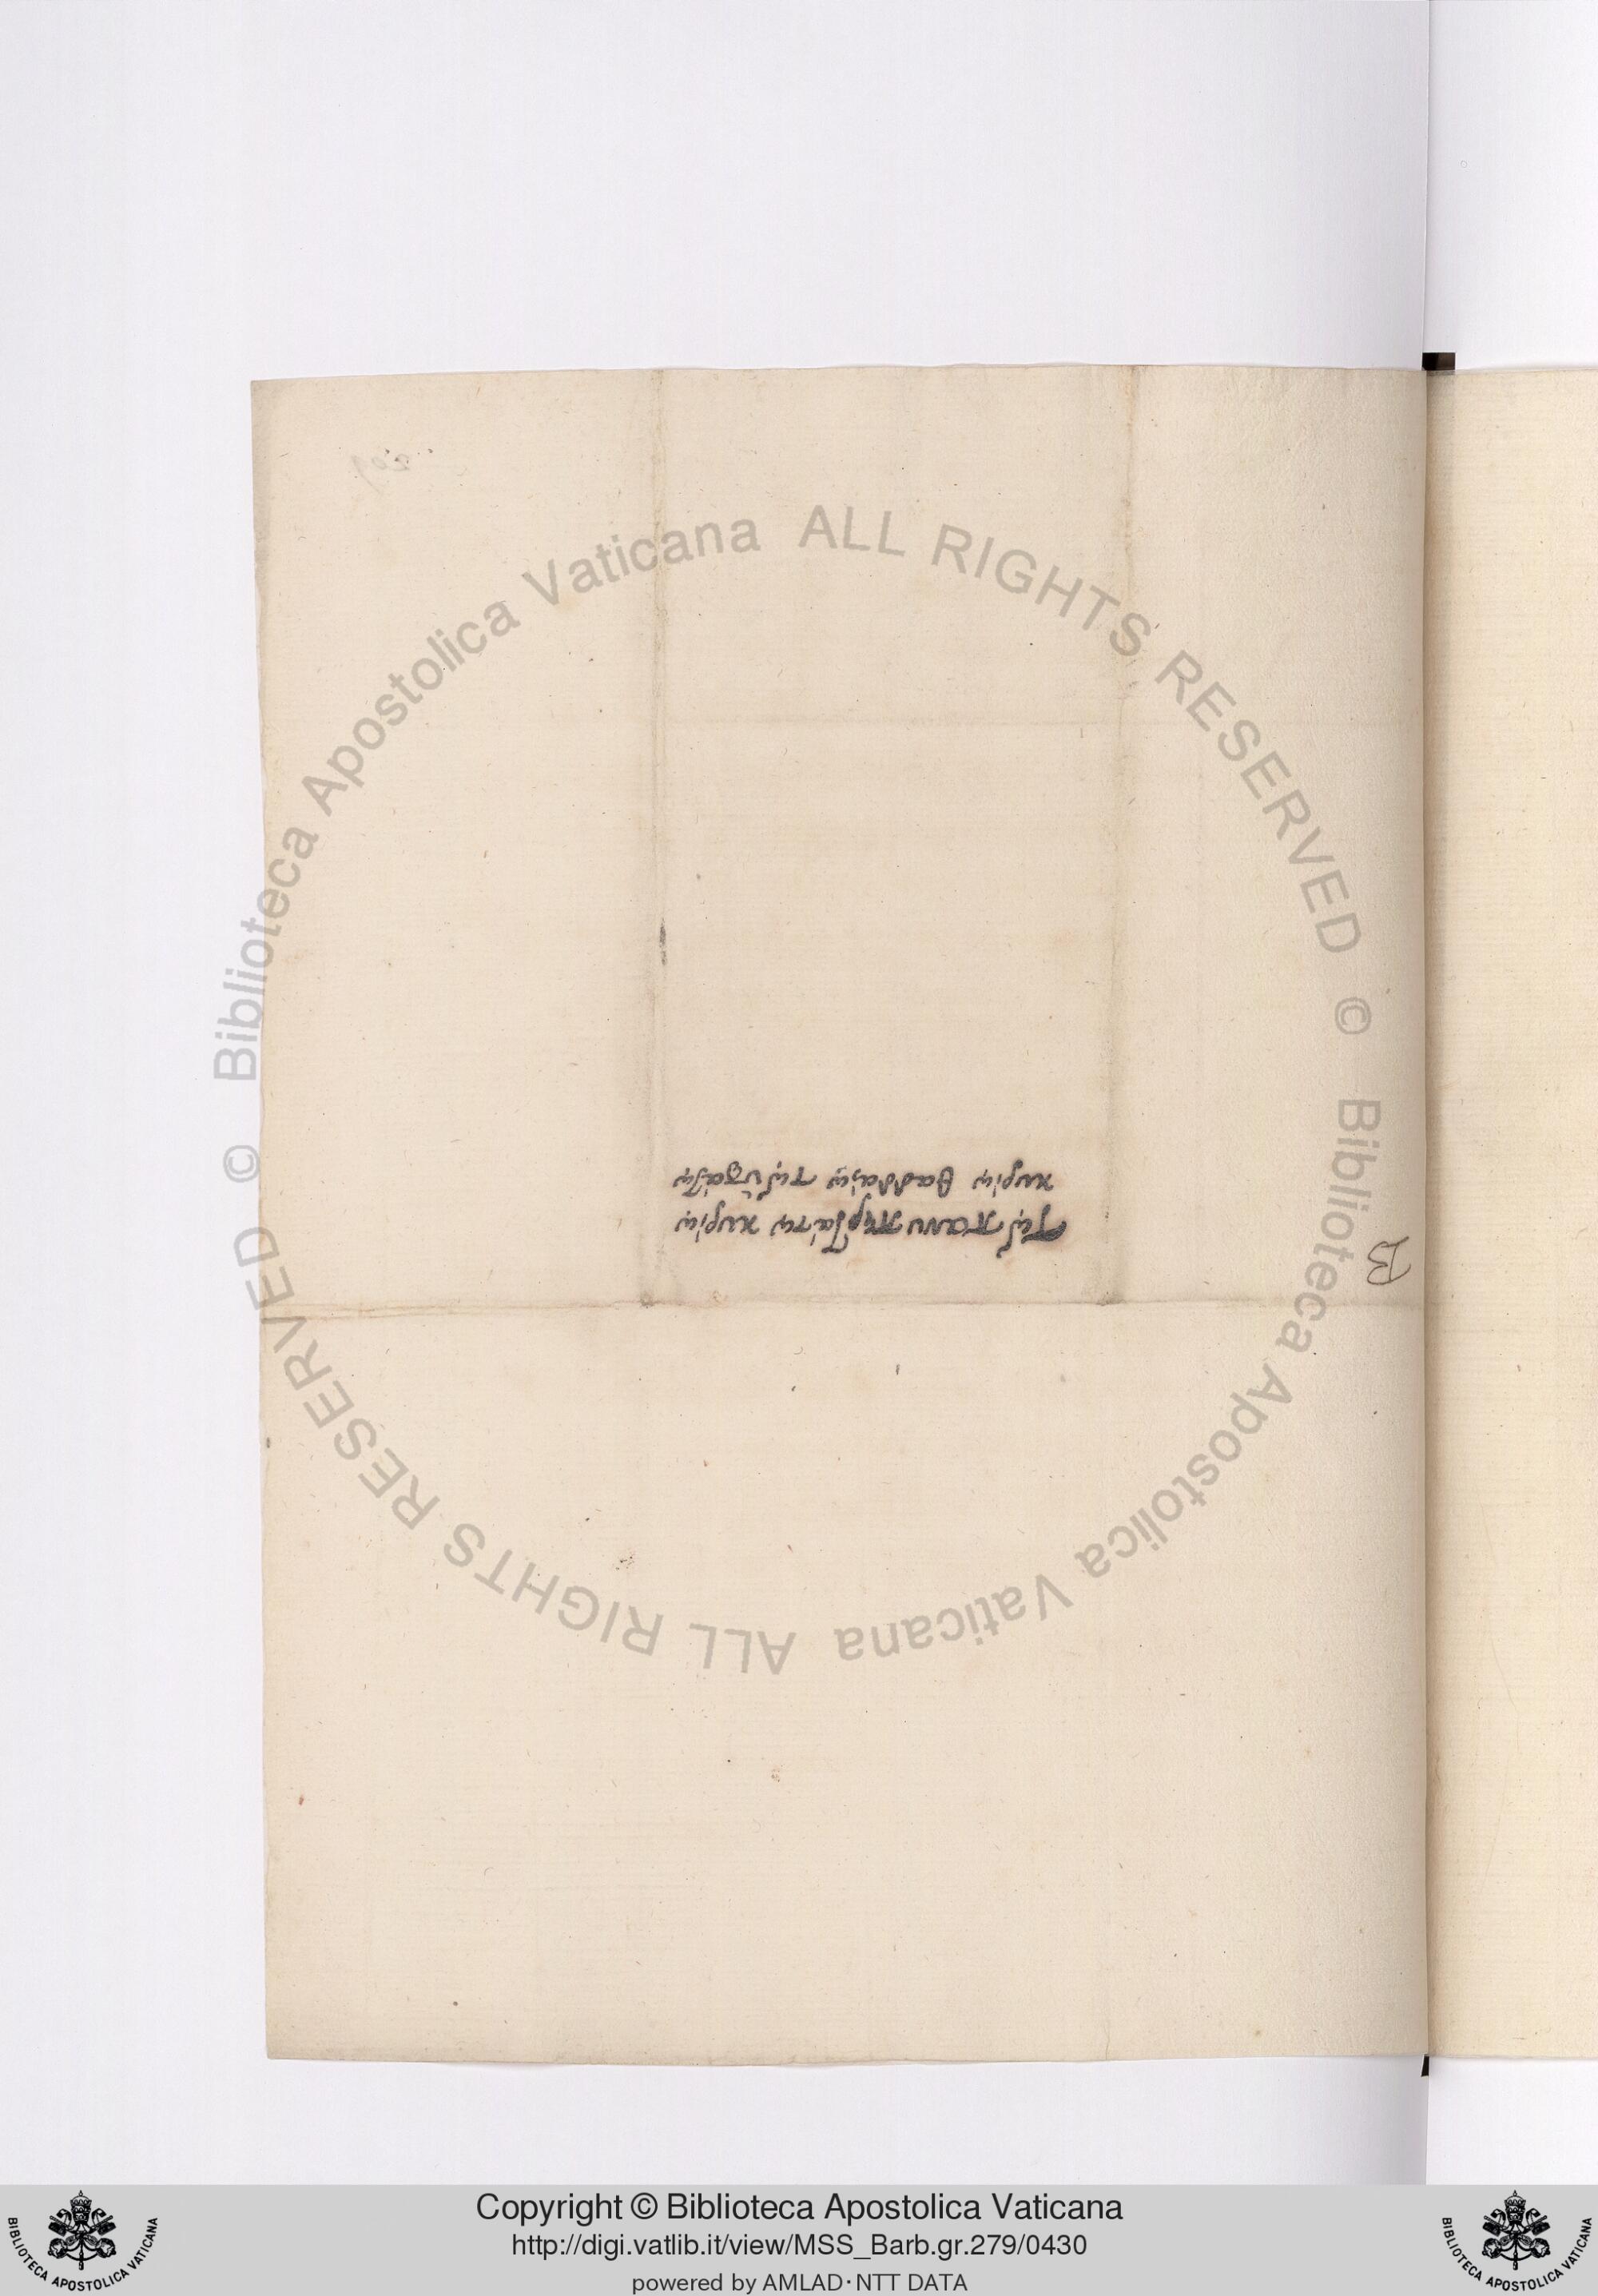 Τῷ πανυπερτάτῳ κυρίῳ
κυρίῳ θαδδαίῳ τῷ ὑπάτῳ
B
Copyright © Biblioteca Apostolica Vaticana
http://digi.vatlib.it/view/MSS_Barb.gr.279/0430
powered by AMLAD·NTT DATA
© Biblioteca Apostolica Vaticana ALL RIGHTS RESERVED
© Biblioteca Apostolica Vaticana ALL RIGHTS RESERVED
BIBLIOTECA APOSTOLICA VATICANA
BIBLIOTECA APOSTOLICA VATICANA